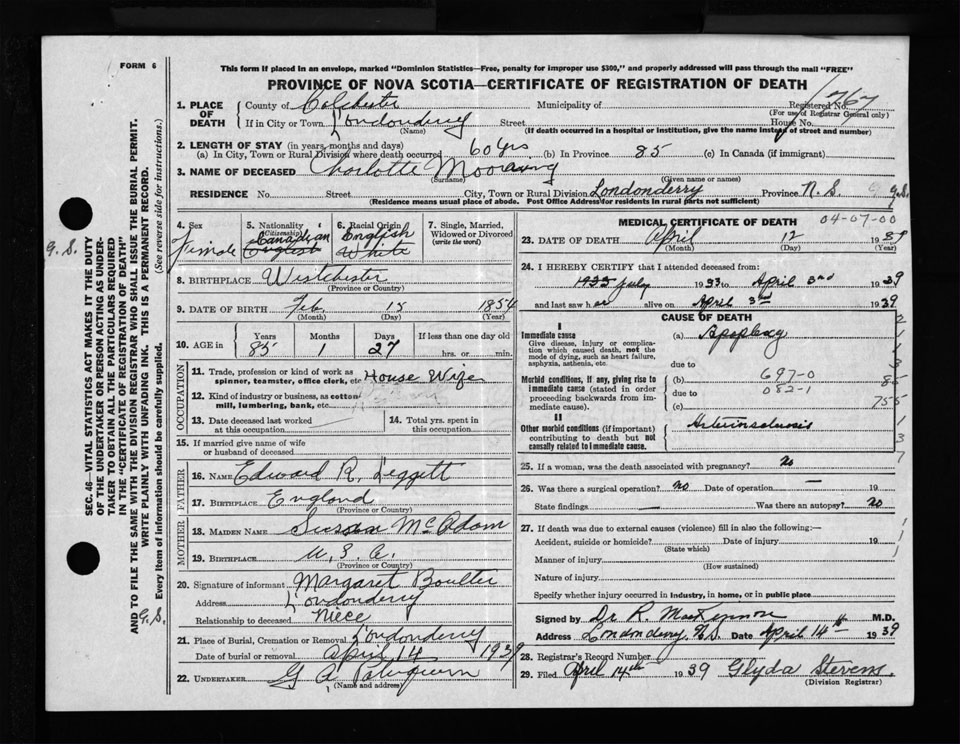 FORM 6
This form if placed in an envelope, marked "Dominion Statistics—Free, penalty for improper use $300," and properly addressed will pass through the mail "FREE"
PROVINCE OF NOVA SCOTIA—CERTIFICATE OF REGISTRATION OF DEATH
1. PLACE OF DEATH { County of Colchester Municipality of Registered No. 1767
(For use of Registrar General only)
If in City or Town Londonderry Street House No.
(Name) (If death occurred in a hospital or institution, give the name instead of street and number)
2. LENGTH OF STAY (in years, months and days)
(a) In City, Town or Rural Division where death occurred 60 yrs. (b) In Province 85 (c) In Canada (if immigrant)
3. NAME OF DECEASED Charlotte Mooring
(Surname) (Given name or names)
RESIDENCE No. Street City, Town or Rural Division Londonderry Province N. S. G.S.
(Residence means usual place of abode. Post Office Address for residents in rural parts not sufficient)
4. Sex
Female
5. Nationality
(Citizenship)
Canadian
English
6. Racial Origin
English
White
7. Single, Married, Widowed or Divorced
(write the word)
8. BIRTHPLACE Westchester
(Province or Country)
9. DATE OF BIRTH Feb. 15 1854
(Month) (Day) (Year)
10. AGE in { Years Months Days If less than one day old
85 1 27 hrs. or min.
OCCUPATION
11. Trade, profession or kind of work as
spinner, teamster, office clerk, etc House Wife
12. Kind of industry or business, as cotton
mill, lumbering, bank, etc.
13. Date deceased last worked
at this occupation
14. Total yrs. spent in
this occupation
15. If married give name of wife
or husband of deceased
FATHER
16. NAME Edward R. Leggett
17. BIRTHPLACE England
(Province or Country)
MOTHER
18. MAIDEN NAME Susan McAdam
19. BIRTHPLACE U. S. A.
(Province or Country)
20. Signature of informant Margaret Boulter
Address Londonderry
Relationship to deceased Niece
21. Place of Burial, Cremation or Removal Londonderry
Date of burial or removal April 14 1939
22. UNDERTAKER G A
(Name and address)
MEDICAL CERTIFICATE OF DEATH
04-07-00
23. DATE OF DEATH April 12 1939
(Month) (Day) (Year)
24. I HEREBY CERTIFY that I attended deceased from:
1933 July 1933 to April 3rd 1939
and last saw her alive on April 3rd 1939
CAUSE OF DEATH
I
Immediate cause
Give disease, injury or complication which caused death, not the mode of dying, such as heart failure, asphyxia, asthenia, etc.
(a) Apoplexy
due to
Morbid conditions, if any, giving rise to immediate cause (stated in order proceeding backwards from immediate cause).
(b) 697-0
due to 082-1
(c)
II
Other morbid conditions (if important) contributing to death but not causally related to immediate cause.
Arteriosclerosis
25. If a woman, was the death associated with pregnancy? No
26. Was there a surgical operation? No Date of operation — 19
State findings — Was there an autopsy? No
27. If death was due to external causes (violence) fill in also the following:—
Accident, suicide or homicide? Date of injury 19
(State which)
Manner of injury
(How sustained)
Nature of injury
Specify whether injury occurred in industry, in home, or in public place
Signed by Dr R. MacKennon M.D.
Address Londonderry N.S. Date April 14th 1939
28. Registrar's Record Number
29. Filed April 14th 1939 Glyda Stevens
(Division Registrar)
SEC. 46—VITAL STATISTICS ACT MAKES IT THE DUTY
OF THE UNDERTAKER OR PERSON ACTING AS UNDER-
TAKER TO OBTAIN ALL THE PARTICULARS REQUIRED
IN THE "CERTIFICATE OF REGISTRATION OF DEATH"
AND TO FILE THE SAME WITH THE DIVISION REGISTRAR WHO SHALL ISSUE THE BURIAL PERMIT.
WRITE PLAINLY WITH UNFADING INK. THIS IS A PERMANENT RECORD.
Every item of information should be carefully supplied. (See reverse side for instructions.)
G. S.
G. S.